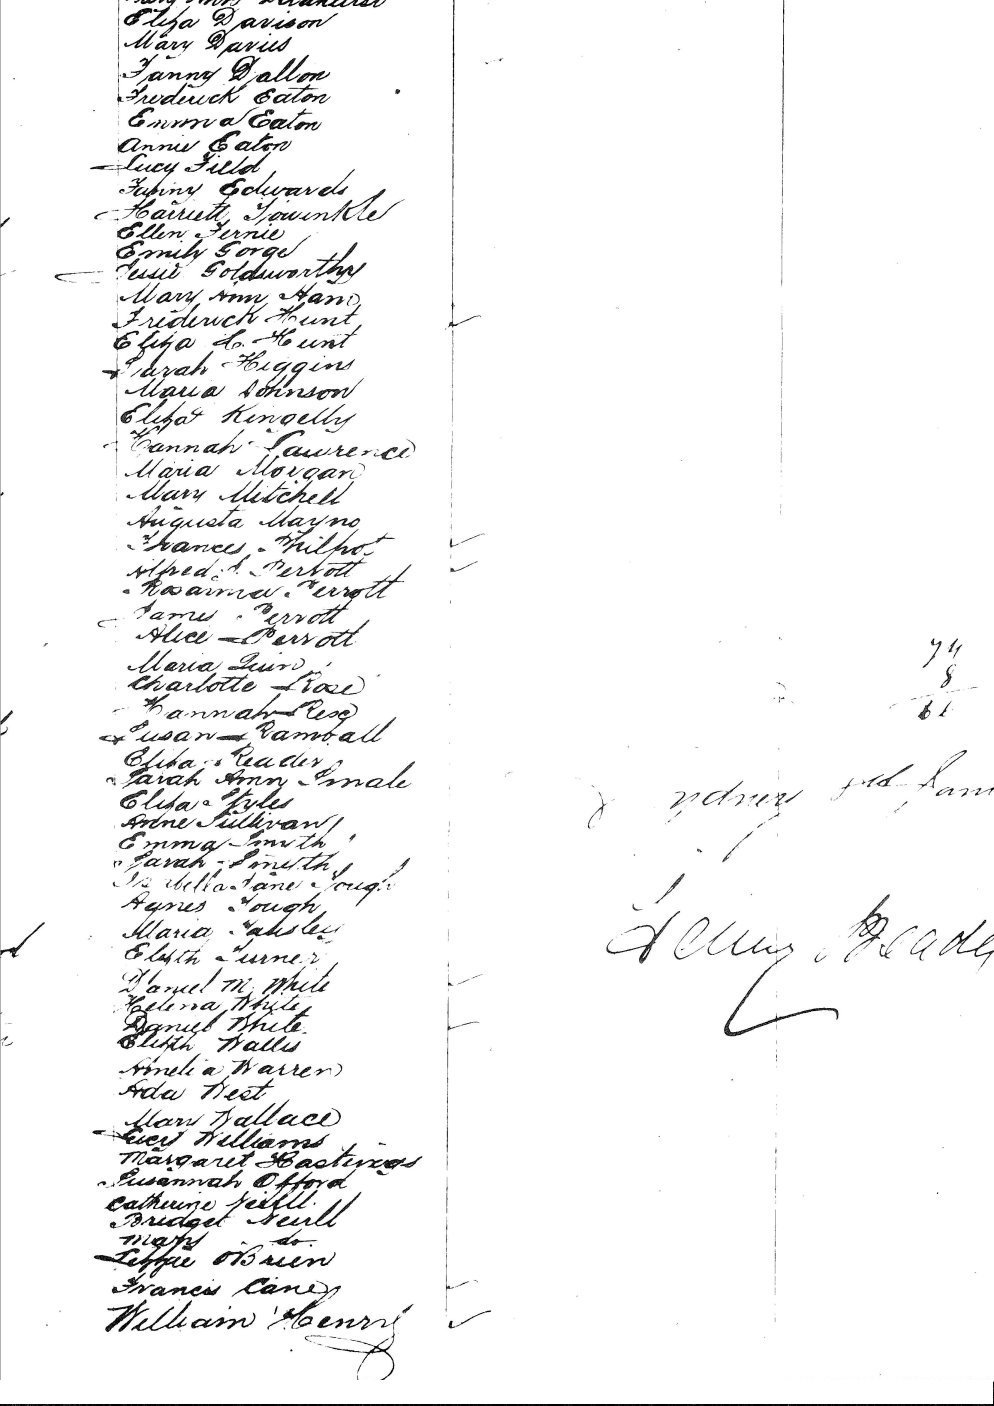 Eliza Davison
Mary Davies
Fanny Dallon
Frederick Eaton
Emma Eaton
Annie Eaton
Lucy Field
Fanny Edwards
Harriett
Ellen Fernie
Emily Gorge
Jessie Goldsworthy
Mary Ann Ham
Frederick Hunt
Eliza C. Hunt
Sarah Higgins
Maria Johnson
Eliza Kingelly
Hannah Lawrence
Maria Morgan
Mary Mitchell
Augusta Mayno
Frances Philpot
Alfred J. Perrott
Rosanna Perrott
James Perrott
Alice Perrott
Maria Quin
Charlotte Rose
Hannah Rese
Susan Ramball
Eliza Reader
Sarah Ann Smale
Eliza Styles
Anne Sullivan
Emma Smith
Sarah Smith
Isabella Jane Tough
Agnes Tough
Maria Tansley
Elizth Turner
Daniel M. White
Helena White
Daniel White
Elizth Wallis
Amelia Warren
Ada West
Mary Wallace
Lucy Williams
Margaret Hastings
Susannah Offord
Catherine Neill
Bridget Neill
Mary do.
Lizzie O'Brien
Francis Caney
William Henry
74
8
Sydney